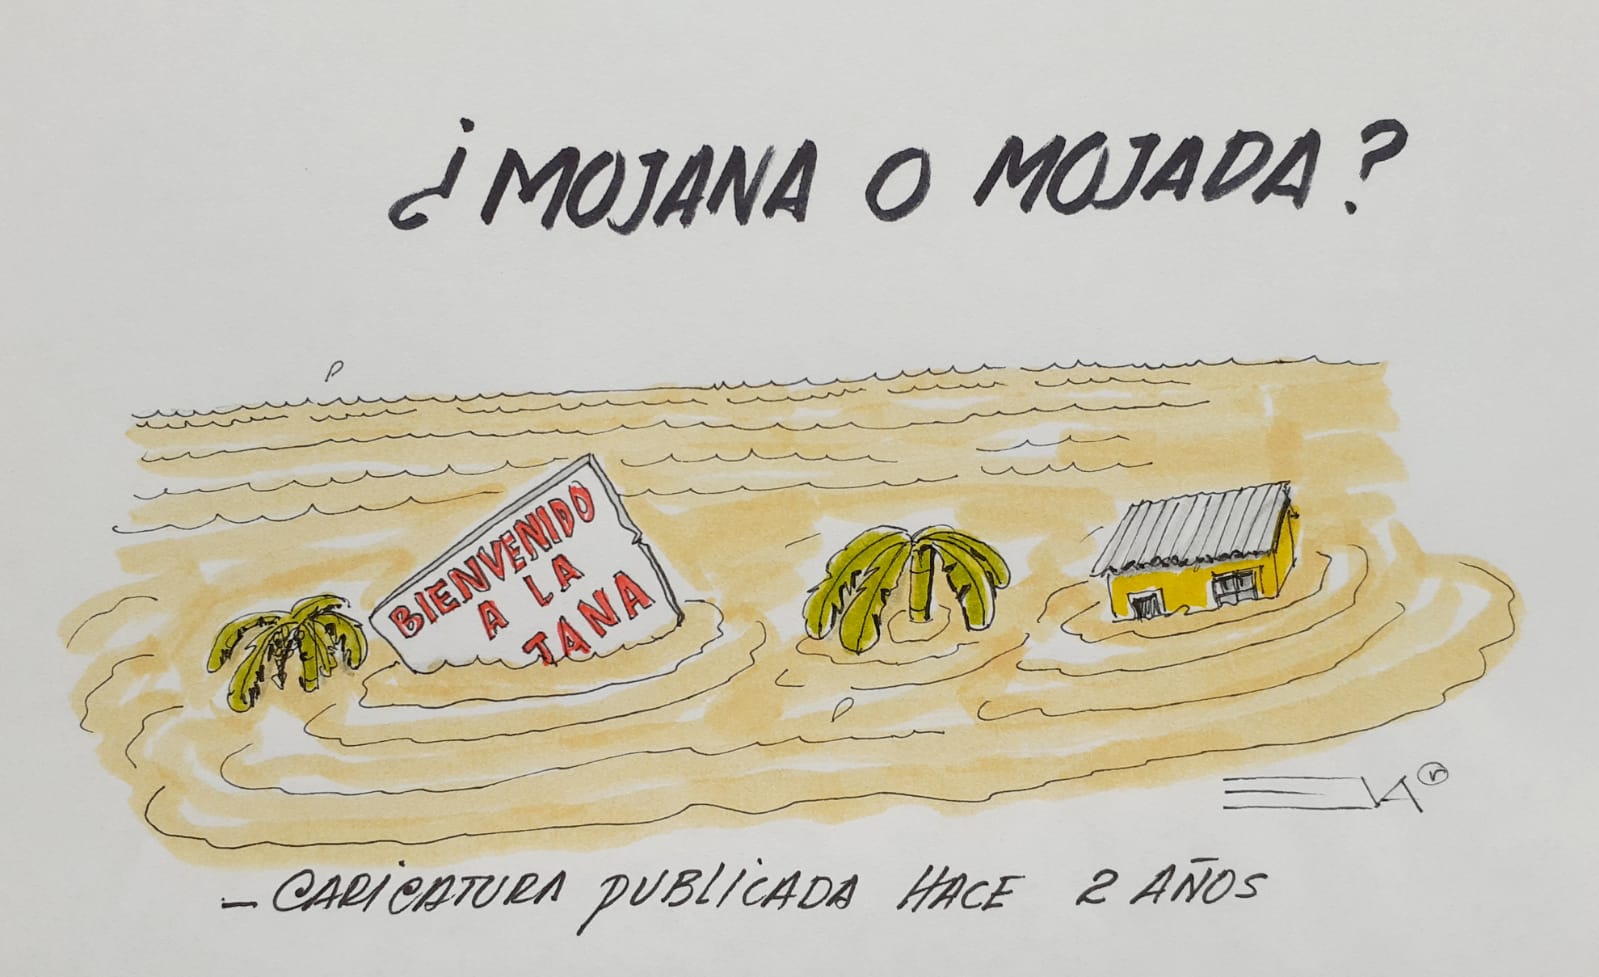 ¿MOJANA O MOJADA?
BIENVENIDO
A LA
JANA
- CARICATURA PUBLICADA HACE 2 AÑOS